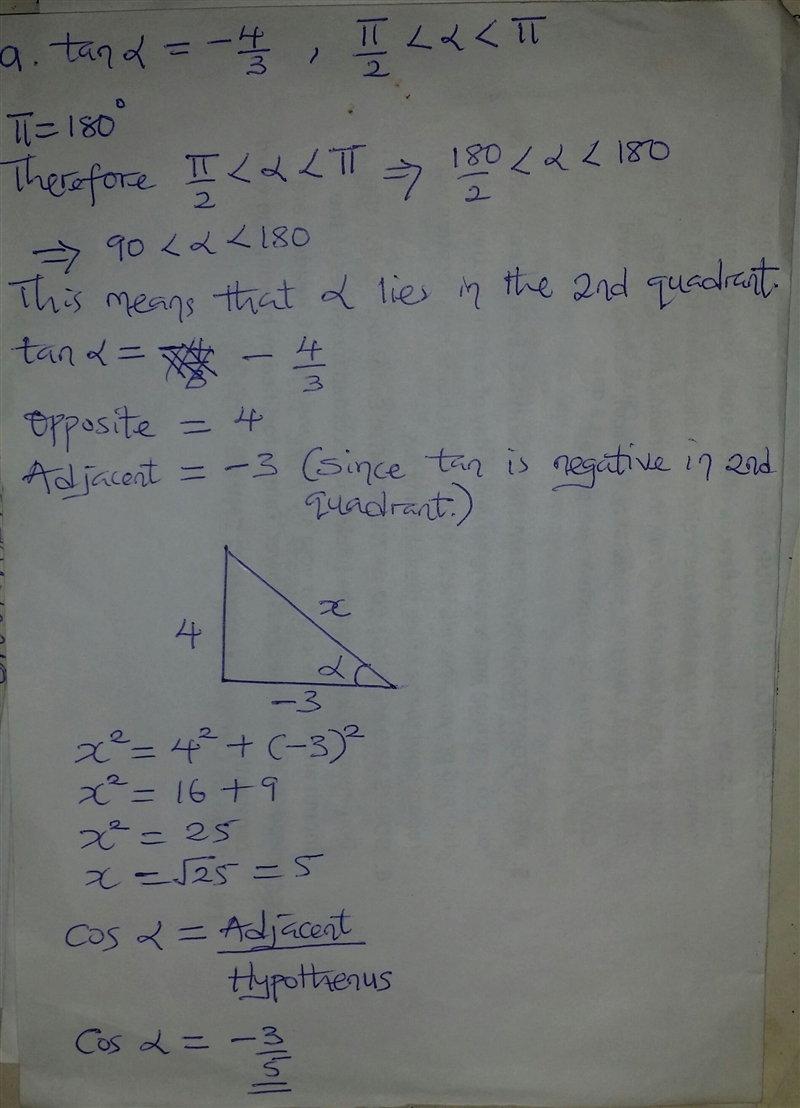 a. tan α = -4/3 , π/2 < α < π
π = 180°
Therefore π/2 < α < π ⇒ 180/2 < α < 180
⇒ 90 < α < 180
This means that α lies in the 2nd quadrant.
tan α = - 4/3
Opposite = 4
Adjacent = -3 (since tan is negative in 2nd
quadrant.)
x
4
α
-3
x² = 4² + (-3)²
x² = 16 + 9
x² = 25
x = √25 = 5
Cos α = Adjacent
Hypothenus
Cos α = -3/5